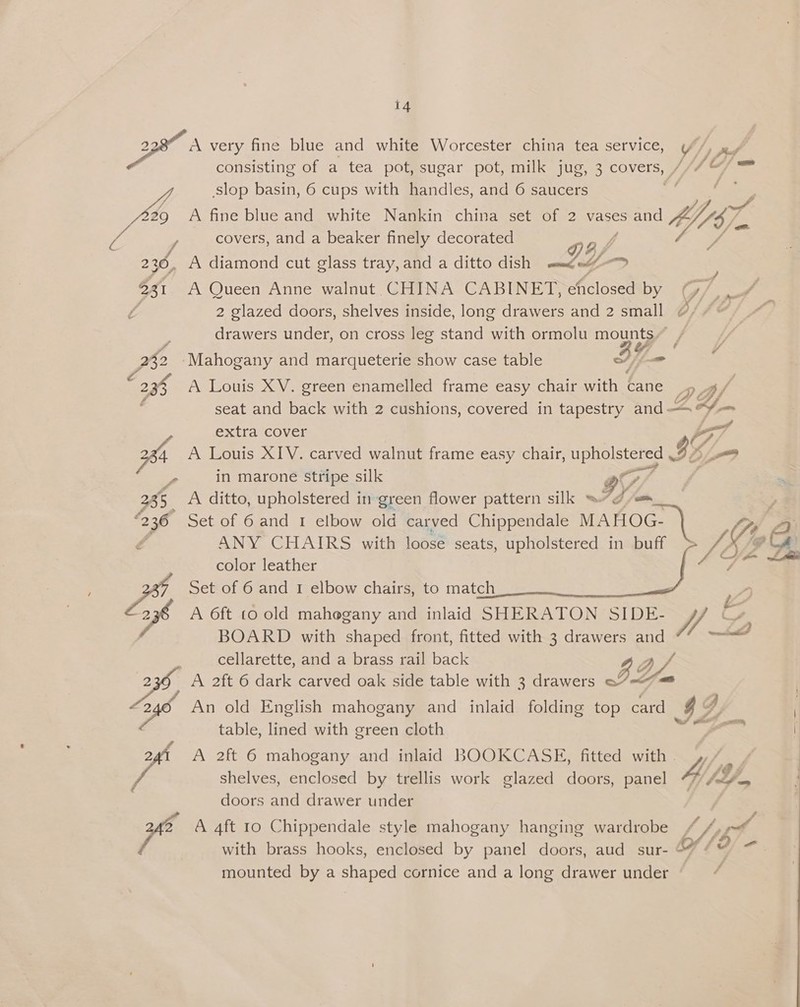 14
228 A very fine blue and white Worcester china tea service,
consisting of a tea pot, sugar pot, milk jug, 3 covers,
slop basin, 6 cups with handles, and 6 saucers
229 A fine blue and white Nankin china set of 2 vases and
covers, and a beaker finely decorated
230, A diamond cut glass tray, and a ditto dish
231 A Queen Anne walnut CHINA CABINET, enclosed by
2 glazed doors, shelves inside, long drawers and 2 small
drawers under, on cross leg stand with ormolu mounts
232 Mahogany and marqueterie show case table
233 A Louis XV. green enamelled frame easy chair with cane
seat and back with 2 cushions, covered in tapestry and
extra cover
234 A Louis XIV. carved walnut frame easy chair, upholstered
in marone stripe silk
235 A ditto, upholstered in green flower pattern silk
236 Set of 6 and 1 elbow old carved Chippendale MAHOG-
ANY CHAIRS with loose seats, upholstered in buff
color leather
237 Set of 6 and 1 elbow chairs, to match
238 A 6ft 10 old mahogany and inlaid SHERATON SIDE-
BOARD with shaped front, fitted with 3 drawers and
cellarette, and a brass rail back
239 A 2ft 6 dark carved oak side table with 3 drawers
240 An old English mahogany and inlaid folding top card
table, lined with green cloth
241 A 2ft 6 mahogany and inlaid BOOKCASE, fitted with
shelves, enclosed by trellis work glazed doors, panel
doors and drawer under
242 A 4ft 10 Chippendale style mahogany hanging wardrobe
with brass hooks, enclosed by panel doors, aud sur-
mounted by a shaped cornice and a long drawer under